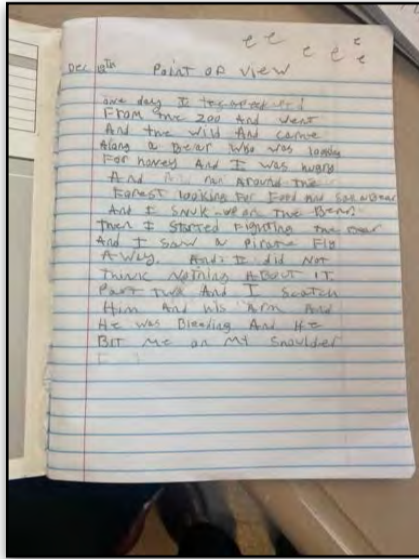 e e e e e e
Dec 18th Point OF View
one day I
From the zoo And went
And the wild And came
Along a Bear who was looking
For honey And I was hungry
And run Around the
Forest looking For Food And Saw a Bear
And I Snuk up on The Bear.
then I Started Fighting the Bear
And I Saw a Pirate Fly
Away. And I did Not
Think Nothing ABOUT IT
Part Two And I Scatch
Him And his Arm And
He was Bleeding And He
BIT me on My Shoulder